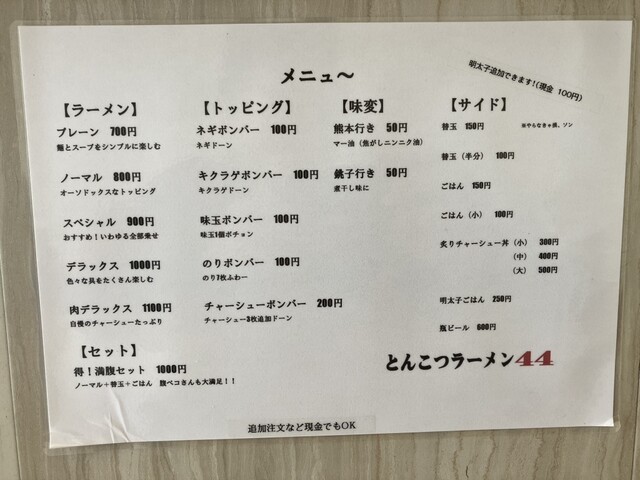 メニュ～
明太子追加できます!（現金 100円）
【ラーメン】
プレーン 700円
麺とスープをシンプルに楽しむ
ノーマル 800円
オーソドックスなトッピング
スペシャル 900円
おすすめ！いわゆる全部乗せ
デラックス 1000円
色々な具をたくさん楽しむ
肉デラックス 1100円
自慢のチャーシューたっぷり
【セット】
得！満腹セット 1000円
ノーマル＋替玉＋ごはん 腹ペコさんも大満足！！
【トッピング】
ネギボンバー 100円
ネギドーン
キクラゲボンバー 100円
キクラゲドーン
味玉ボンバー 100円
味玉1個ポチョン
のりボンバー 100円
のり7枚ふわー
チャーシューボンバー 200円
チャーシュー3枚追加ドーン
【味変】
熊本行き 50円
マー油（焦がしニンニク油）
銚子行き 50円
煮干し味に
【サイド】
替玉 150円 ※やらなきゃ損、ソン
替玉（半分） 100円
ごはん 150円
ごはん（小） 100円
炙りチャーシュー丼（小） 300円
（中） 400円
（大） 500円
明太子ごはん 250円
瓶ビール 600円
とんこつラーメン44
追加注文など現金でもOK